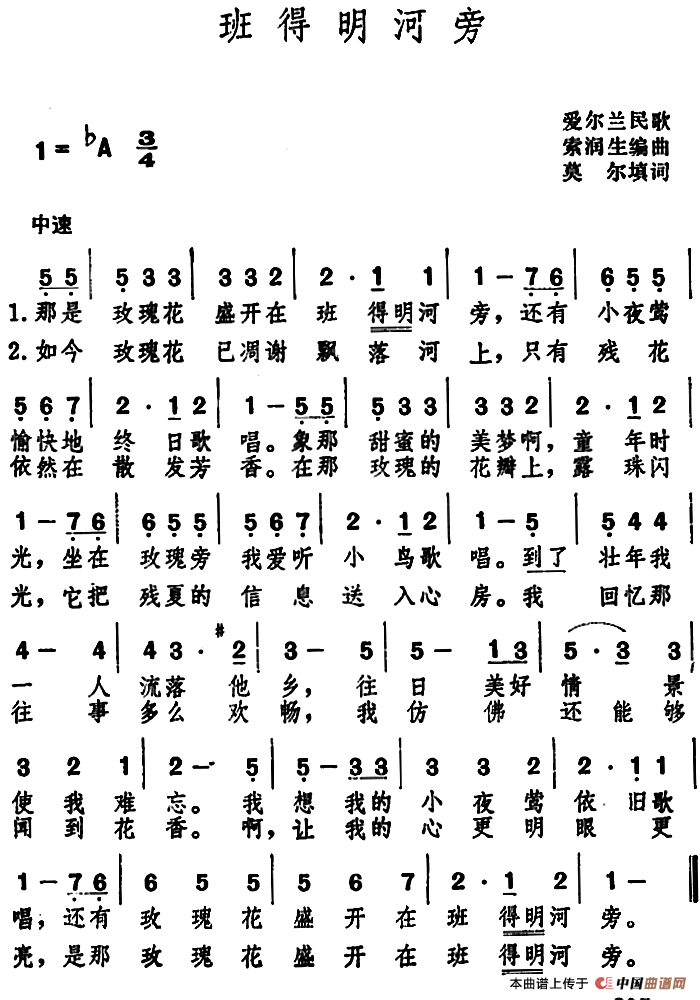 班得明河旁
1=♭A 3/4
爱尔兰民歌
索润生编曲
莫尔填词
中速
5 5 | 5 3 3 | 3 3 2 | 2 · 1 1 | 1 - 7 6 | 6 5 5 |
1.那是 玫瑰花 盛开在 班 得明河 旁，还有 小夜莺
2.如今 玫瑰花 已凋谢 飘 落河 上，只有 残花
5 6 7 | 2 · 1 2 | 1 - 5 5 | 5 3 3 | 3 3 2 | 2 · 1 2 |
愉快地 终 日歌 唱。象那 甜蜜的 美梦啊，童 年时
依然在 散 发芳 香。在那 玫瑰的 花瓣上，露 珠闪
1 - 7 6 | 6 5 5 | 5 6 7 | 2 · 1 2 | 1 - 5 | 5 4 4 |
光，坐在 玫瑰旁 我爱听 小 鸟歌 唱。到了 壮年我
光，它把 残夏的 信息送 入心 房。我 回忆那
4 - 4 | 4 3 · #2 | 3 - 5 | 5 - 1 3 | 5 · 3 3 |
一 人 流落 他 乡，往 日 美好 情 景
往 事 多么 欢 畅，我 仿 佛 还能够
3 2 1 | 2 - 5 | 5 - 3 3 | 3 3 3 | 2 · 1 1 |
使我难 忘。我 想 我的 小夜莺 依 旧歌
闻到花 香。啊，让 我的 心更明 眼 更
1 - 7 6 | 6 5 5 | 5 6 7 | 2 · 1 2 | 1 - ‖
唱，还有 玫瑰花 盛开在 班 得明河 旁。
亮，是那 玫瑰花 盛开在 班 得明河 旁。
本曲谱上传于 中国曲谱网